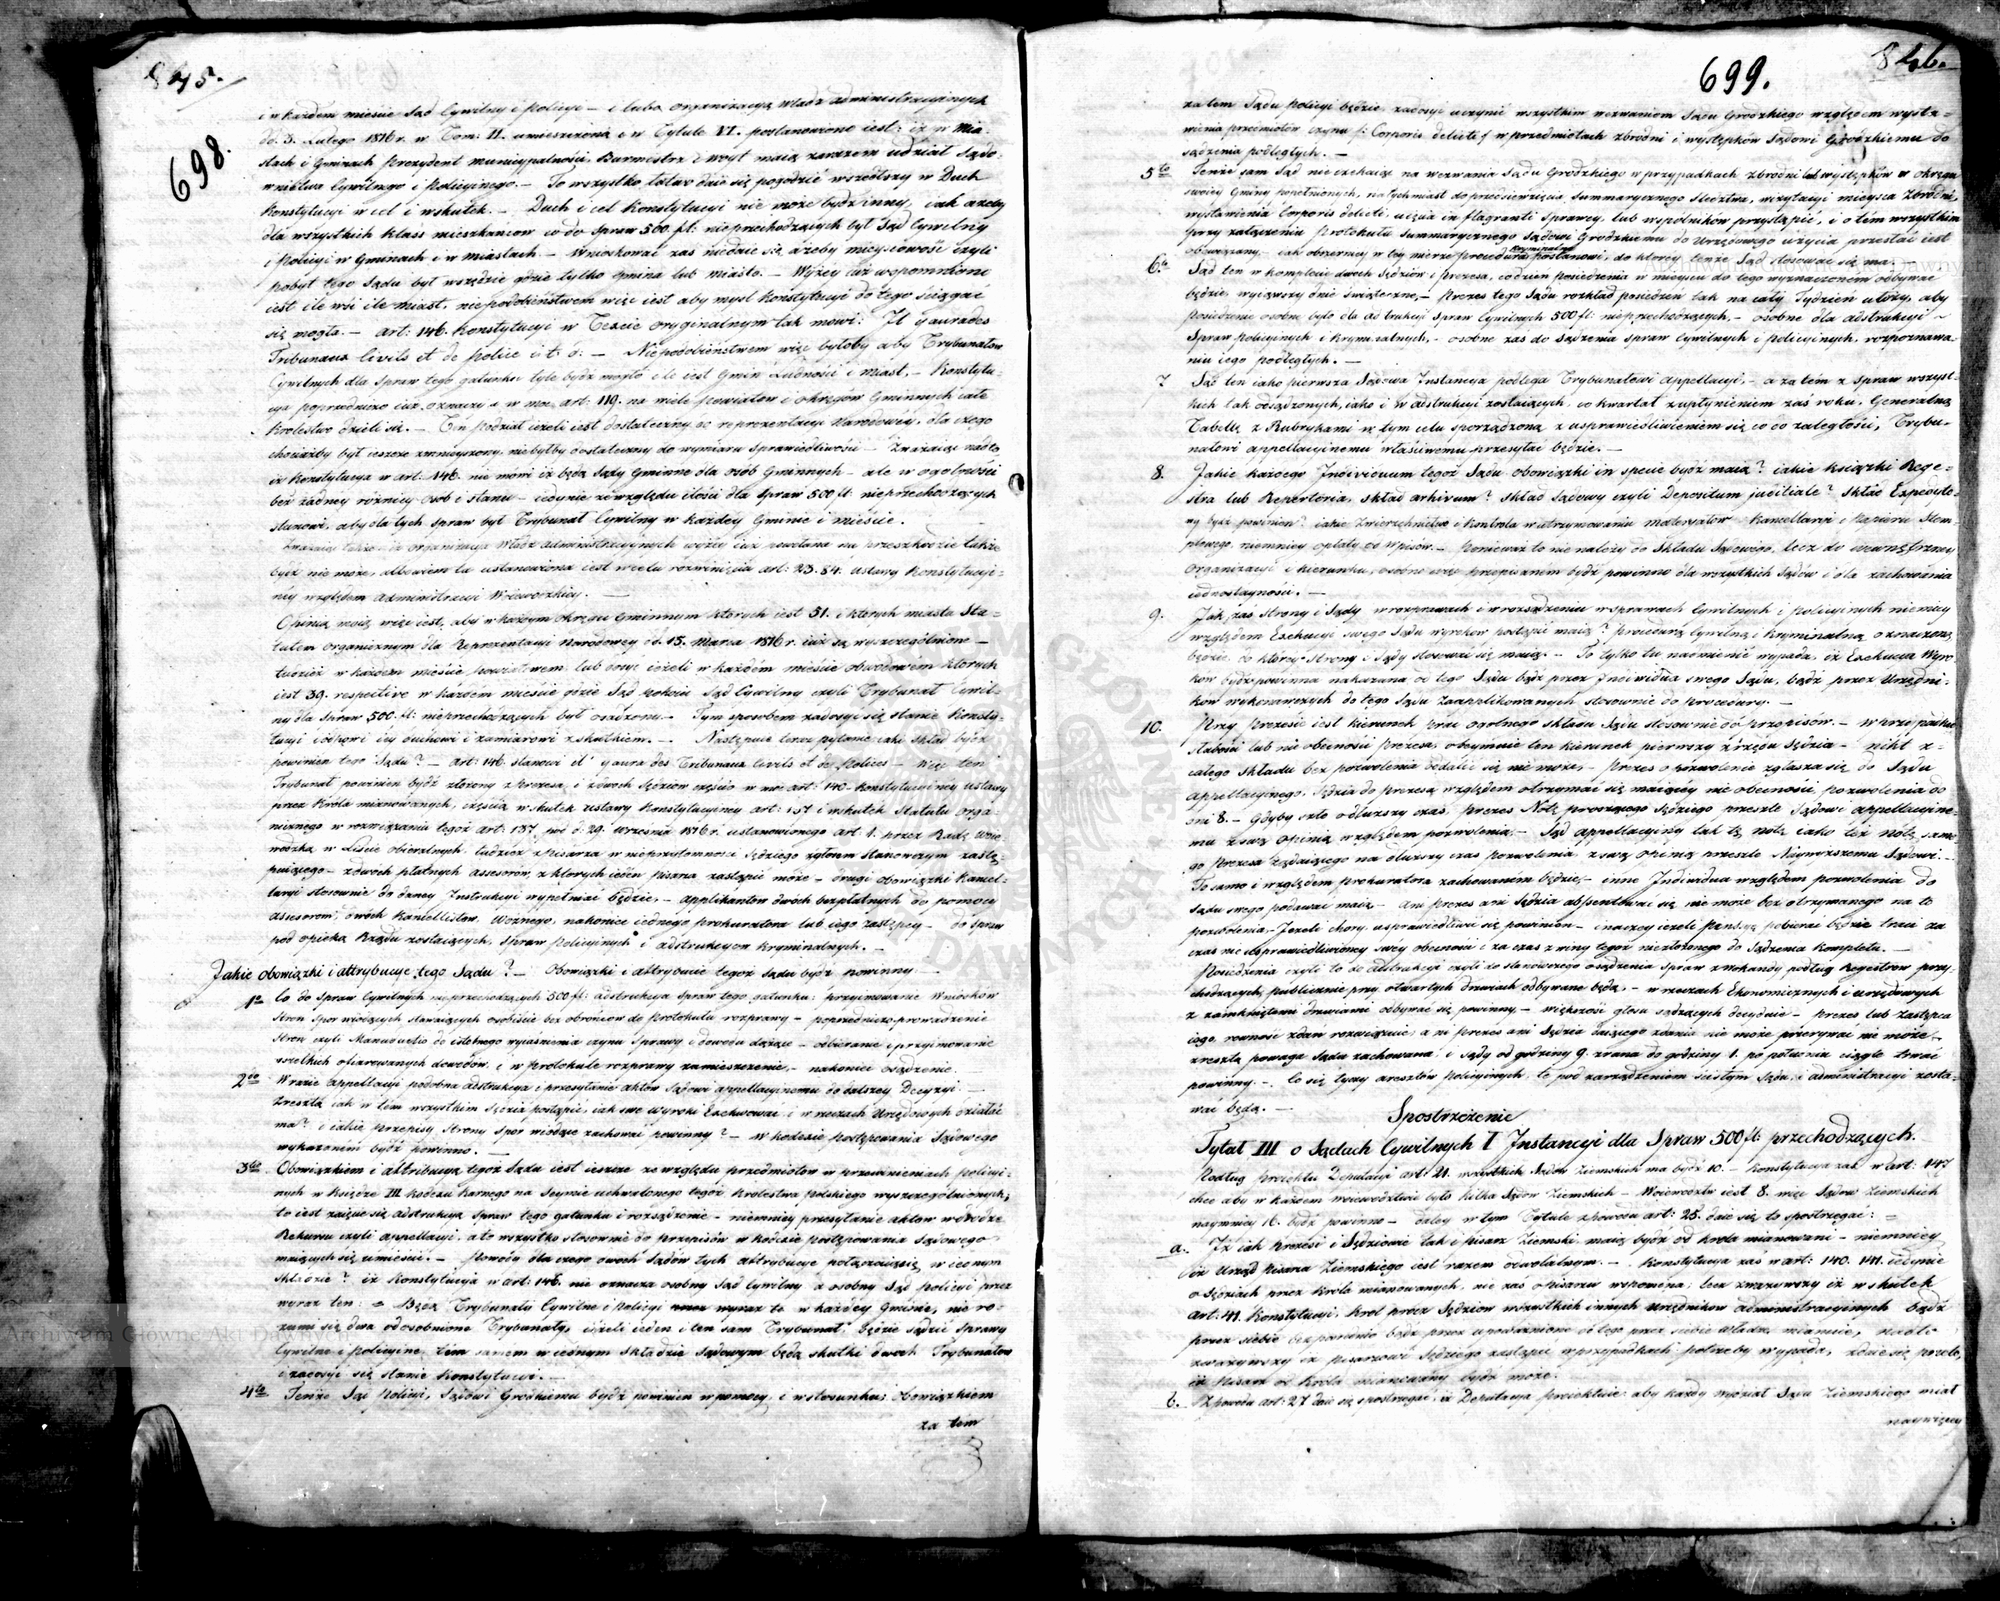 845.
698.
i w każdem mieście Sąd Cywilny i Policyi — i lubo organizacyą władz administracyinych
do: 3. Lutego 1816 r. w Tom: II. umieszczoną i w Tytule VI. postanowiono iest: iż w Mia-
stach i Gminach Prezydent municypalności, Burmistrz i woyt maią zarazem udział Sądo-
wnictwa Cywilnego i Policyinego. — To wszystko łatwo daie się pogodzić wszedłszy w Duch
Konstytucyi w cel i w skutek. — Duch i cel Konstytucyi nie może bydź inny, iak ażeby
dla wszystkich klass mieszkańcow co do Spraw 500 fl: nieprzechodzących był Sąd Cywilny
i Policyi w Gminach i w miastach. — Wnioskować zaś niedaie się ażeby mieyscowość czyli
pobyt tego Sądu był wszędzie gdzie tylko Gmina lub miasto. — Wyżey iuż wspomniono
iest ile wsi ile miast, niepodobieństwem więc iest aby myśl Konstytucyi do tego ściągać
się mogła. — art: 146. Konstytucyi w Texcie oryginalnym tak mówi: Il y aura des
Tribunaux Civils et de Police i t. d: — Niepodobieństwem więc byłoby aby Trybunałow
Cywilnych dla Spraw tego gatunku tyle bydź mogło ile iest Gmin Ludności i miast. — Konstytu-
cya poprzedniczo iuż oznaczyła w moc art: 119. na wiele powiatow i okręgów Gminnych całe
Krolestwo dzieli się. — Ten podział ieżeli iest dostateczny do reprezentacyi Narodowey, dla czego
chociażby był ieszcze zmnieyszony, niebyłby dostateczny do wymiaru Sprawiedliwości — Zważaiąc nadto,
iż Konstytucya w art: 146. nie mówi iż będą Sądy Gminne dla osób Gminnych — ale w ogolności
bez żadney różnicy osob i stanu — iedynie zewzględu ilości dla Spraw 500 fl: nieprzechodzących
stanowi, aby dla tych spraw był Trybunał Cywilny w każdey Gminie i mieście.
Zważaiąc także iż organizacya Władz administracyinych wyżey iuż powołana na przeszkodzie także
bydź nie może, albowiem ta ustanowiona iest wcelu rozwinięcia art: 23. 84. ustawy Konstytucyi-
ney względem administracyi Woiewodzkiey. —
Opinią moią więc iest, aby w każdym okręgu Gminnym których iest 51. i których miasta Sta-
tutem organicznym dla Reprezentacyi Narodowey d: 15. Marca 1816 r. iuż są wyszczególnione —
tudzież w każdem mieście powiatowem lub owe ieżeli w każdém mieście obwodowém ktorych
iest 39. respective w każdem mieście gdzie Sąd pokoiu Sąd Cywilny czyli Trybunał Cywil-
ny dla Spraw 500. fl: nieprzechodzących był osadzony. — Tym sposobem zadosyć się stanie Konsty-
tucyi i odpowi iey duchowi i zamiarowi zskutkiem. — Następuie teraz pytanie iaki skład bydź
powinien tego Sądu? — art: 146. stanowi il y aura des Tribunaux Civils et de Police — Więc ten
Trybunał powinien bydź złożony z Prezesa, i dwoch Sędziow częścią w moc art: 140. Konstytucyiney ustawy
przez Króla mianowanych, częścią w skutek ustawy Konstytucyiney art: 137 i wskutek Statutu orga-
nicznego w rozwiązaniu tegoż art: 137. pod d: 29. Września 1816 r. ustanowionego art. 1. przez Radę Woie-
wodzką w Liście obieralnych, tudzież z Pisarza w nieprzytomności Sędziego zgłosem stanowczym zastę-
puiącego — zdwóch płatnych assesorow, z ktorych ieden Pisarza zastąpić może — drugi obowiązki Kancel-
laryi stosownie do daney Instrukcyi wypełniać będzie, — applikantow dwóch bezpłatnych do pomocy
assesorom, dwóch Kancellistow, Woźnego, nakoniec iednego prokuratora lub iego zastępcy — do Spraw
pod opieką Rządu zostaiących, Spraw Policyinych i adstrukcyow kryminalnych. —
Jakie obowiązki i attrybucye tego Sądu? — Obowiązki i attrybucie tegoż Sądu bydź powinny —
1o Co do Spraw Cywilnych nieprzechodzących 500 fl: adstrukcya Spraw tego gatunku: przyimowanie Wnioskow
Stron Spor wiodących stawaiących osobiście bez obrońcow do protokułu rozprawy — poprzedniczo prowadzenie
Stron czyli Manuductio do istotnego wyiaśnienia czynu Sprawy i dowodu dążące — odbieranie i przyimowanie
wszelkich ofiarowanych dowodow i w Protokule rozprawy zamieszczenie — nakoniec osądzenie.
2do W razie appellacyi podobna adstrukcya i przesyłanie aktow Sądowi appellacyinemu do dalszey Decyzyi —
Zresztą iak w tém wszystkim Sędzia postąpić, iak swe wyroki Exekwować, i w rzeczach Urzędowych działać
ma? i iakie przepisy Strony Spor wiodące zachować powinny? — w kodexie postępowania Sądowego
wykazaném bydź powinno. —
3tio Obowiązkiem i attrybucyą tegoż Sądu iest ieszcze zewzględu przedmiotow w przewinieniach Policyi-
nych w Księdze III kodexu karnego na Seymie uchwalonego tegoż Krolestwa Polskiego wyszczególnionych;
to iest zaięcie się adstrukcyą Spraw tego gatunku i rozsądzenie — niemniey przesyłanie aktow w drodze
Rekursu czyli appellacyi, a to wszystko stosownie do przepisów w Kodexie postępowania Sądowego
maiących się umieścić. — Powody dla czego dwoch Sądów tych attrybucye połączaią się w iednym
składzie? iż Konstytucya w art: 146. nie oznacza osobny Sąd Cywilny a osobny Sąd Policyi przez
wyraz ten: = Będą Trybunały Cywilne i Policyi przez wyraz te w każdey Gminie, nie ro-
zumi się dwa odosobnione Trybunały, ieżeli ieden i ten sam Trybunał będzie sądzić Sprawy
Cywilne i Policyine, tém samém w iednym składzie Sądowym będą skutki dwoch Trybunałow
i zadosyć się stanie Konstytucyi. —
4to Tenże Sąd Policyi, Sądowi Grodzkiemu bydź powinien w pomocy, i w stosunku; Obowiązkiem
za tém
699.
846.
zatem Sądu Policyi będzie, zadosyć uczynić wszystkim wezwaniom Sądu Grodzkiego względem wysta-
wienia przedmiotów czynu /: Corporis delicti :/ w przedmiotach zbrodni i występków Sądowi Grodzkiemu do
sądzenia podległych. —
5to Tenże sam Sąd nie czekaiąc na wezwania Sądu Grodzkiego w przypadkach Zbrodni lub występkow w okręgu
swoiey Gminy popełnionych, natychmiast do przedsięwzięcia Summarycznego Śledztwa, wizytacyi mieysca Zbrodni
wystawienia Corporis delicti, uięcia in flagranti Sprawcy, lub wspolnikow przystąpić, i o tém wszystkim
przy załączeniu Protokułu Summarycznego Sądowi Grodzkiemu do Urzędowego użycia przesłać iest
obowiązany — iak obszerniey w tey mierze procedura kryminalna postanowi, do którey tenże Sąd stosować się ma.
6o Sąd ten w komplecie dwoch Sędziów i Prezesa, codzień posiedzenia w mieyscu do tego wyznaczoném odbywać
będzie, wyiąwszy dnie świąteczne, — Prezes tego Sądu rozkład posiedzeń tak na cały Tydzień ułoży, aby
posiedzenie osobne było dla adstrukcyi Spraw Cywilnych 500 fl: nieprzechodzących, — osobne dla adstrukcyi
Spraw Policyinych i Kryminalnych, — osobne zaś do Sądzenia spraw Cywilnych i Policyinych, rozpoznawa-
niu iego podległych. —
7 Sąd ten iako pierwsza Sądowa Instancya podlega Trybunałowi appellacyi, — a zatém z Spraw wszyst-
kich tak osądzonych, iako i w adstrukcyi zostaiących, co kwartał z upłynieniem zaś roku, Generalną
Tabellę z Rubrykami w tym celu sporządzoną z usprawiedliwieniem się co do zaległości, Trybu-
nałowi appellacyinemu właściwemu przesyłać będzie. —
8. Jakie każdego Individuum tegoż Sądu obowiązki in specie bydź maią? iakie książki Rege-
stra lub Repertoria, skład arhivum? skład Sądowy czyli Depositum judiciale? skład Expedyto-
ny bydź powinien? iakie zwierzchnictwo i kontrola w utrzymowaniu materyałow Kancellaryi i Papieru Stem-
plowego, niemniey opłaty od wpisów. — Ponieważ to nie należy do Składu Sądowego, lecz do wewnętrzney
Organizacyi i kierunku, osobno więc przepisaném bydź powinno dla wszystkich Sądów i dla zachowania
iednostayności. —
9. Jak zaś Strony i Sądy w rozprawach i w rozsądzeniu w sprawach Cywilnych i Policyinych niemniey
względem Exekucyi swego Sądu wyroków postąpić maią? procedura Cywilna i Kryminalna oznaczoną
będzie, do którey Strony i Sądy stosować się maią. — To tylko tu nadmienić wypada, iż Exekucya Wyro-
kow bydź powinna nakazana od tego Sądu bądź przez Individua swego Sądu, bądź przez Urzędni-
ków wykonawczych do tego Sądu zaapplikowanych stosownie do procedury. —
10. Przy Prezesie iest kierunek prac ogolnego składu Sądu stosownie do przepisów. — W przypadku
słabości lub nie obecności Prezesa, obeymuie ten kierunek pierwszy z rzędu Sędzia — nikt z
całego Składu bez pozwolenia oddalić się nie może, — Prezes o pozwolenie zgłasza się do Sądu
Appellacyinego, Sędzia do Prezesa względem otrzymać się maiącey nie obecności pozwolenia do
dni 8. — Gdyby szło o dłuższy czas, prezes Notę proszącego Sędziego prześle Sądowi appellacyine-
mu z swą opinią względem pozwolenia. — Sąd appellacyiny tak tę notę iako też notę same-
go Prezesa żądaiącego na dłuższy czas pozwolenia, z swą opinią prześle Naywyższemu Sądowi. —
To samo i względem prokuratora zachowaném będzie, — inne Individua względem pozwolenia do
Sądu swego podawać maią — Ani prezes ani Sędzia absentować się nie może bez otrzymanego na to
pozwolenia. — Jeżeli chory, usprawiedliwić się powinien — inaczey ieżeli Pensyą pobierać będzie traci za
czas nie usprawiedliwioney swey obecności i za czas z winy tegoż niezłożonego do Sądzenia kompletu. —
Posiedzenia czyli to do adstrukcyi czyli do stanowczego osądzenia spraw z Wokandy podług Regestrow przy-
chodzących, publicznie przy otwartych drzwiach odbywane będą, — w rzeczach Ekonomicznych i urzędowych
z zamkniętemi drzwiami odbywać się powinny, — większość głosu sądzących decyduie — Prezes lub zastępca
iego, rowność zdań rozwiązuie, a ni prezes ani Sędzia daiącego zdanie nie może przerywać nie może. —
zresztą powaga Sądu zachowana; i Sądy od godziny 9. zrana do godziny 1. po południu ciągle trwać
powinny. — Co się tyczy aresztów Policyinych, te pod zarządzeniem ścisłym Sądu i administracyi zosta-
wać będą. —
Spostrzeżenie
Tytuł III o Sądach Cywilnych I Instancyi dla Spraw 500 fl: przechodzących.
Podług proiektu Deputacyi art: 21. wszystkich Sądów Ziemskich ma bydź 10. — Konstytucya zaś w art: 147
chce aby w każdem woiewodztwie było kilka Sądow Ziemskich — Woiewodztw iest 8. więc Sądow Ziemskich
naymniey 16. bydź powinno — daley w tym Tytule z powodu art: 25. daie się to spostrzegać: =
a. Iż iak Prezesi i Sędziowie tak i pisarz Ziemski maią bydź od krola mianowani — niemniey
iż Urząd Pisarza Ziemskiego iest razem odwołalnym. — Konstytucya zaś w art: 140. 141. iedynie
o Sędziach przez Króla mianowanych, nie zaś o Pisarzu wspomina; lecz zważywszy iż w skutek
art: 41. Konstytucyi, Krol procz Sędziow wszystkich innych Urzędnikow administracyinych bądź
przez siebie bezpośrednio bądź przez upoważnione do tego przez siebie władze, mianuie, nadto
zważywszy iż pisarzowi Sędziego zastąpić w przypadkach potrzeby wypada, zdaie się przeto,
iż Pisarz od Króla mianowany bydź może.
b. Z powodu art: 27 daie się spostrzegać, iż Deputacya proiektuie: aby każdy wydział Sądu Ziemskiego miał
naywięcey